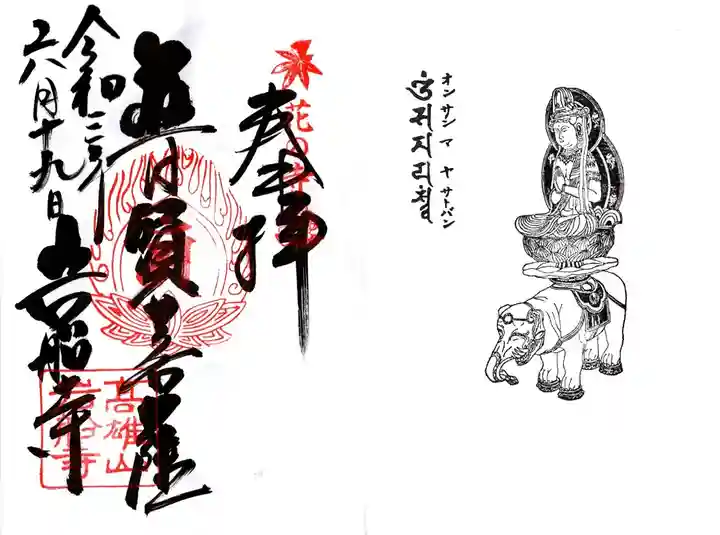 オン サン マ ヤ サトバン
奉拝
花の寺
普賢菩薩
令和三年
六月十九日
岩船寺
高雄山
岩船寺